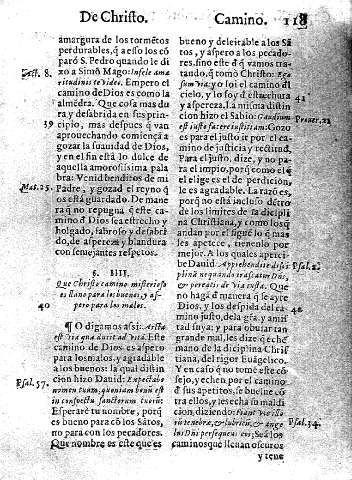 De Christo. Camino. 118
amargura de los tormẽtos
perdurables, q̃ a esso los cõ
paró S. Pedro quando le di
xo a Simõ Mago: Infele ama
ritudinis te video. Empero el
camino de Dios es como la
almẽdra. Que cosa mas du
ra y desabrida en sus prin-
cipio, mas despues q̃ van
aprouechando comiença a
gozar la suauidad de Dios,
y en el fin está lo dulce de
aquella amorosissima pala
bra: Venid benditos de mi
Padre, y gozad el reyno q̃
os està guardado. De mane
ra q̃ no repugna q̃ este ca-
mino d̃ Dios sea estrecho y
holgado, sabroso y desabri
do, de aspereza y blandura
con semejantes respetos.
Act. 8.
39
Mat. 25.
§. IIII.
Que Christo camino misterioso
es llano para los buenos, y as-
pero para los malos.
40
¶ O digamos assi: Arcta
est via quæ ducit ad vitã. Este
camino de Dios, es aspero
para los malos, y agradable
a los buenos: la qual distin
cion hizo Dauid: Expectabo
nomen tuum, quoniam bonũ est
in conspectu sanctorum tuorũ:
Esperarè tu nombre, porq̃
es bueno para cõ los Sãtos,
y no para con los pecadores.
Que nombre es este que es
Psal. 57.
bueno y deleitable a los Sã
tos, y aspero a los pecado-
res, sino este d̃ q̃ vamos tra-
tando, q̃ tomò Christo: Ego
sum via: yo soi el camino d̃l
cielo, y lo soy d̃ estrechura
y aspereza. La misma distin
cion hizo el Sabio: Gaudium
est iusto facere iustitiam: Gozo
es para el justo ir por el ca-
mino de justicia y rectitud.
Para el justo, dize, y no pa-
ra el impio, porq̃ como el q̃
el elige es el de perdiciõ, no
le es agradable. La razõ es,
porq̃ no està incluso dẽtro
de los limites de la diciplI
na Christiana, y como los q̃
andan por el sigue lo q̃ mas
les apetece, tienenlo por
mejor. A los quales aperci-
be Dauid. Apprehendite disci
plinã nequando irascatur Dñs,
& pereatis de via iusta. Que
no haga d̃ manera q̃ se ayre
Dios, y los despida del ca-
mino justo, de la gr̃a, y amis
tad suya: y para obuiar tan
grande mal, les dize q̃ eche
mano de la diciplina Chris
tiana, del rigor Euãgelico.
Y en caso q̃ no tomè este cõ
sejo, y echen por el camino
d̃ sus apetitos, se buelue cõ
tra ellos, y les echa su maldi
cion, diziendo: Fiant viæ illo
rũ tenebræ, & lubricũ, & ange
lus Dñi persequens eos: Sea los
caminos que lleuan oscuros
41
Prouer. 21
Psal. 2.
42
Psal. 34.
y tene